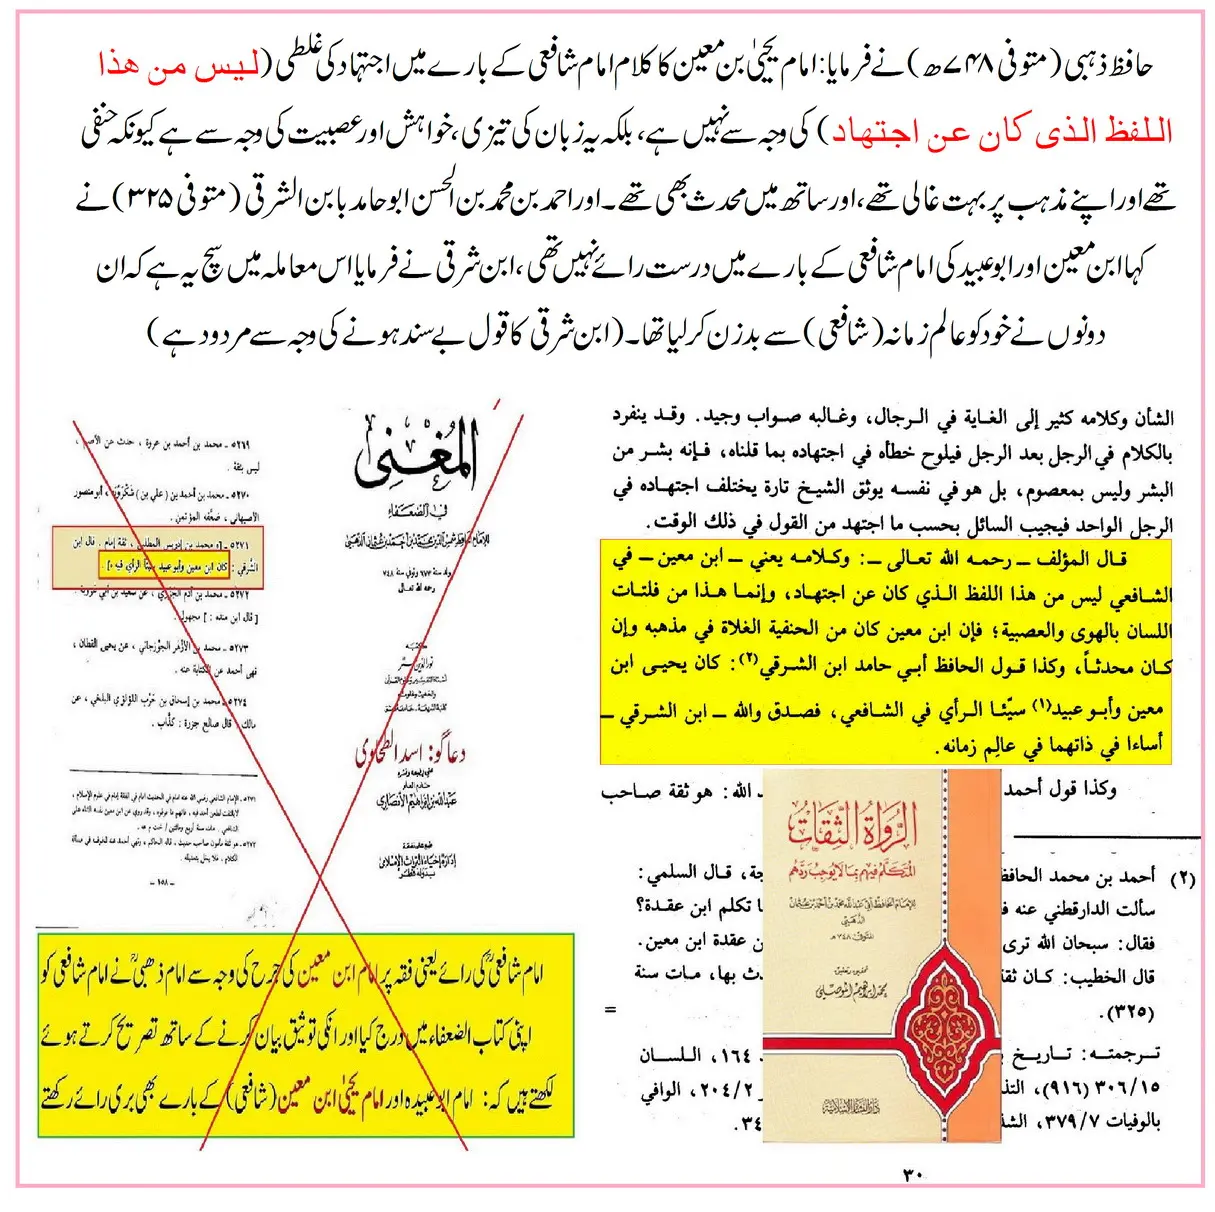 حافظ ذہبی (متوفی ۷۴۸ھ) نے فرمایا: امام یحییٰ بن معین کا کلام امام شافعی کے بارے میں اجتہاد کی غلطی (لیس من ھذا
اللفظ الذی کان عن اجتھاد) کی وجہ سے نہیں ہے، بلکہ یہ زبان کی تیزی، خواہش اور عصبیت کی وجہ سے ہے کیونکہ حنفی
تھے اور اپنے مذہب پر بہت غالی تھے، اور ساتھ میں محدث بھی تھے۔ اور احمد بن محمد بن الحسن ابو حامد بابن الشرقی (متوفی ۳۲۵) نے
کہا ابن معین اور ابو عبید کی امام شافعی کے بارے میں درست رائے نہیں تھی، ابن شرقی نے فرمایا اس معاملہ میں سچ یہ ہے کہ ان
دونوں نے خود کو عالم زمانہ (شافعی) سے بدزن کر لیا تھا۔ (ابن شرقی کا قول بے سند ہونے کی وجہ سے مردود ہے)
الشأن وكلامه كثير إلى الغاية في الرجال، وغالبه صواب وجيد. وقد ينفرد
بالكلام في الرجل بعد الرجل فيلوح خطأه في اجتهاده بما قلناه، فإنه بشر من
البشر وليس بمعصوم، بل هو في نفسه يوثق الشيخ تارة يختلف اجتهاده في
الرجل الواحد فيجيب السائل بحسب ما اجتهد من القول في ذلك الوقت.
قال المؤلف ــ رحمه الله تعالى ــ: وكلامه يعني ــ ابن معين ــ في
الشافعي ليس من هذا اللفظ الذي كان عن اجتهاد، وإنما هذا من فلتات
اللسان بالهوى والعصبية؛ فإن ابن معين كان من الحنفية الغلاة في مذهبه وإن
كان محدثاً، وكذا قول الحافظ أبي حامد ابن الشرقي(٢): كان يحيى ابن
معين وأبو عبيد(١) سيّئا الرأي في الشافعي، فصدق والله ــ ابن الشرقي ــ
أساءا في ذاتهما في عالِم زمانه.
وكذا قول أحمد
د الله: هو ثقة صاحب
(٢) أحمد بن محمد الحافظ
جة، قال السلمي:
سألت الدارقطني عنه ف
ا تكلم ابن عقدة؟
فقال: سبحان الله ترى
ن عقدة ابن معين.
قال الخطيب: كان ثقة
دث بها، مات سنة
(٣٢٥).
=
ترجمته: تاريخ
١٦٤، اللسان
٣٠٦/١٥ (٩١٦)، التذ
٢٠٤/٢، الوافي
بالوفيات ٣٧٩/٧، الشذ
٣٤.
٣٠
الرواة الثقات
المتكلم فيهم بما لا يوجب ردهم
للإمام الحافظ أبي عبد الله محمد بن أحمد بن عثمان
الذهبي
المتوفى ٧٤٨هـ
محمد إبراهيم الموصلي
دار البشائر الإسلامية
المغني
في الضعفاء
للإمام الحافظ شمس الدين محمد بن أحمد بن عثمان الذهبي
ولد سنة ٦٧٣ وتوفي سنة ٧٤٨
رحمه الله تعالى
نور الدين عتر
دعا گو: اسد الطحاوی
عبد الله بن إبراهيم الأنصاري
إدارة إحياء التراث الإسلامي
بدولة قطر
٥٢٦٩ ــ محمد بن أحمد بن عروة ، حدث عن الأصم ،
ليس بثقة .
٥٢٧٠ ــ محمد بن أحمد بن (علي بن) شكرويه ، أبو منصور
الأصبهاني ، ضعفه المؤتمن .
٥٢٧١ ــ [* محمد بن إدريس المطلبي ، ثقة إمام . قال ابن
الشرقي : كان ابن معين وأبو عبيد سيئا الرأي فيه *] .
[ قال ابن منده : ] مجهول .
٥٢٧٣ ــ محمد بن الأزهر الجوزجاني ، عن يحيى القطان ،
نهى أحمد عن الكتابة عنه .
٥٢٧٤ ــ محمد بن إسحاق بن حرب اللؤلؤي البلخي ، عن
مالك ، قال صالح جزرة : كذاب .
ــ ١٥٨ ــ
امام شافعیؒ کی رائے یعنی فقہ پر امام ابن معین کی جرح کی وجہ سے امام ذھبیؒ نے امام شافعی کو
اپنی کتاب الضعفاء میں درج کیا اور انکی توثیق بیان کرنے کے ساتھ تصریح کرتے ہوئے
لکھتے ہیں کہ: امام ابو عبیدہ اور امام یحییٰ ابن معین (شافعی) کے بارے بھی بری رائے رکھتے